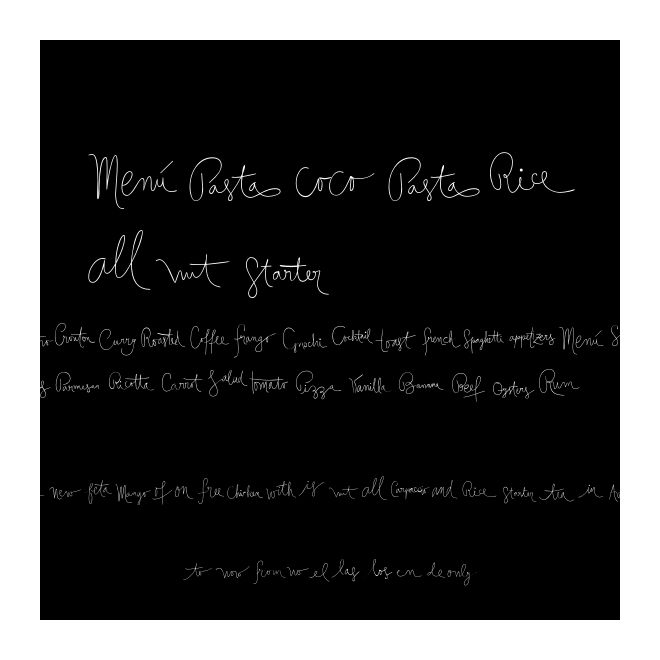 Menú Pasta Coco Pasta Rice
all nut Starter
Crouton Curry Roasted Coffee frango Gnochi Cocktail toast french Spaghetti appetizers Menú
Parmesan Ricotta Carrot Salud tomato Pizza Vanilla Banana Beef Oysters Rum
new feta Mango of on free Chicken with is nut all Carpaccio and Rice Starter tea in
to now from no el las los en de only